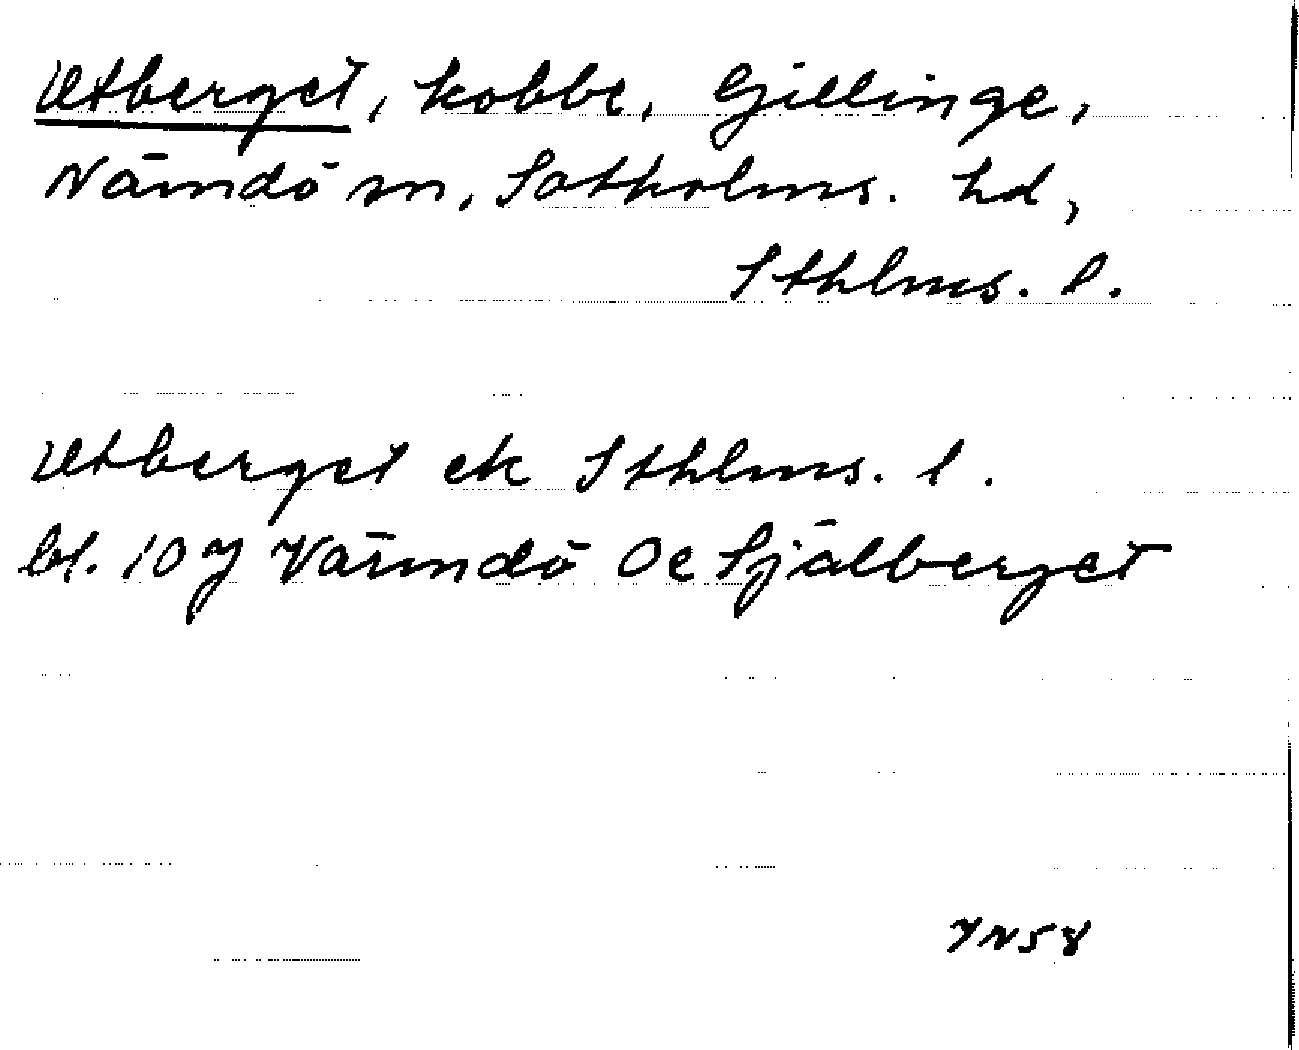 Utberget, kobbe, Gillinge,
Nämdö sn, Sotholms. hd,
Sthlms. l.
Utberget ek Sthlms. l.
bl. 107 Värmdö Oc Själberget
YN58